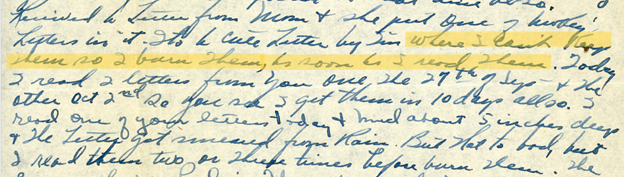 Received a Letter from Mom & she put one of
Letters in it. Its a cute Letter by Tim where I cant Keep
them so I burn Them, as soon as I read Them. Today
I read 2 letters from you one, the 27th of Sept & the
other Oct 2nd So you see I get them in 10 days allso. I
read one of your letters today & mud about 5 inches deep
& The Letter got smeared from Rain. But Not to bad, but
I read them two or three times before burn them. The